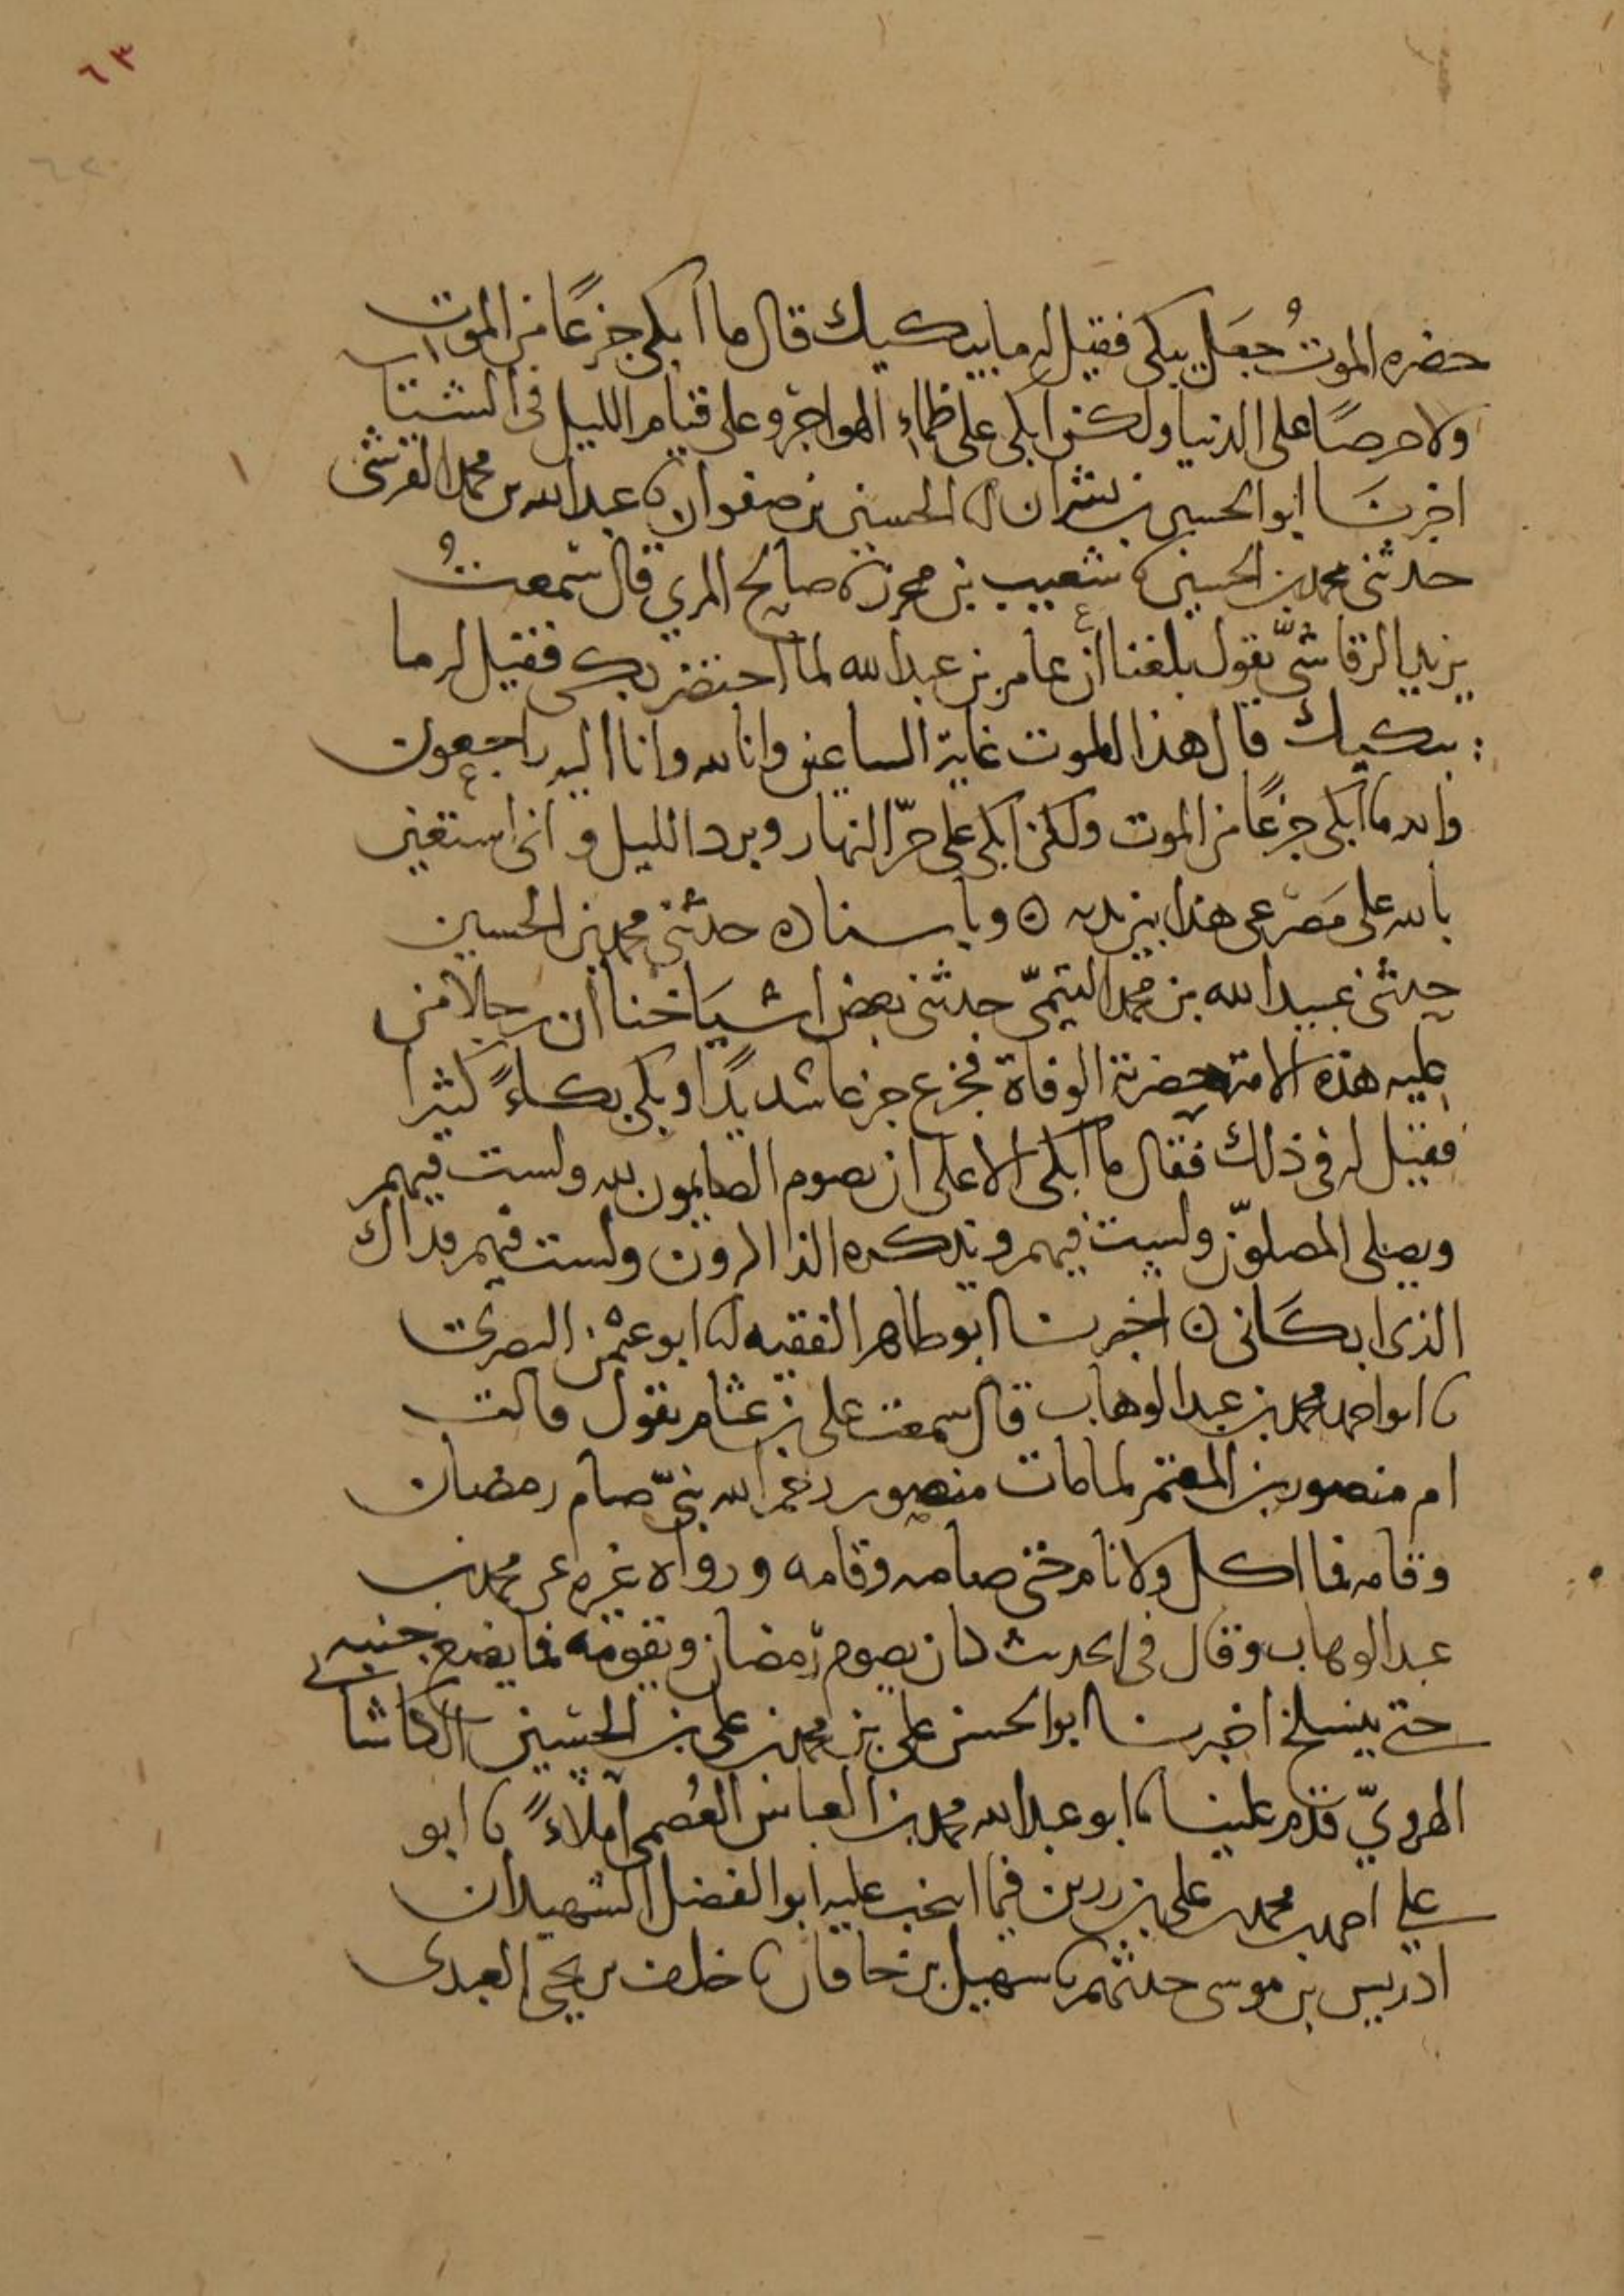 ٦٣
حضره الموتُ جعَل يبكى فقيل له ما يبكيك قال ما ابكى جزعًا من الموت
ولا حرصًا على الدنيا ولكن ابكى على ظماء الهواجر وعلى قيام الليل فى الشتا
اخبرنَا ابو الحسين بن بشران انا الحسين بن صفوان نا عبد الله بن محمد القرشى
حدثنى محمد بن الحسين نا شعيب بن محرز نا صالح المري قال سمعتُ
يزيد الرقاشىّ يقول بلغنا أن عامر بن عبد الله لما احتضر بكى فقيل له ما
يبكيك قال هذا الموت غاية الساعين وانا لله وانا اليه راجعون
والله ما ابكى جزعًا من الموت ولكن ابكى على حرّ النهار وبرد الليل و انى استعين
بالله على مَصْرعى هذا بين يديه ٥ وباسناده حدثنى محمد بن الحسين
حدثنى عبيد الله بن محمد التيمىّ حدثنى بعض اشيَاخنا أن رجالا من
علية هذه الامة حضرته الوفاة فجزع جزعا شديدًا وبكى بكاءً كثيرا
فقيل له فى ذلك فقال ما ابكى الا على ان يصوم الصايمون لله ولست فيهم
ويصلى المصلوّن ولست فيهم ويذكره الذاكرون ولست فيهم فذاك
الذى ابكَانى ٥ اخبرنا ابو طاهر الفقيه انا ابو عثمن البصرى
نا ابو احمد محمد بن عبد الوهاب قال سمعت على بن عثام يقول قالت
ام منصور بن المعتمر لما مات منصور رحم الله بنىّ صام رمضان
وقامه فما اكل ولا نام حتى صامه وقامه ورواه غيره عن محمد بن
عبد الوهاب وقال فى الحديث كان يصوم رمضان ويقومه فما يضع جنبه
حتى ينسلخ اخبرنا ابو الحسن على بن محمد بن على بن الحسين الكاشا
الهرويّ قدم علينا نا ابو عبد الله محمد بن العباس العُصمى املاءً نا ابو
على احمد بن محمد بن على بن رزين فيما انتخب عليه ابو الفضل الشهيد ان
ادريس بن موسى حدثهم نا سهيل بن خاقان نا خلف بن يحيى العبدى